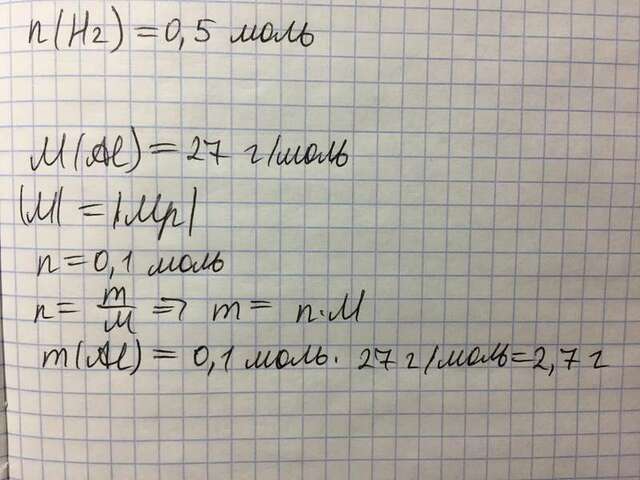 n(H₂) = 0,5 моль
M(Al) = 27 г/моль
|M| = |Mr|
n = 0,1 моль
n = m/M => m = n·M
m(Al) = 0,1 моль · 27 г/моль = 2,7 г